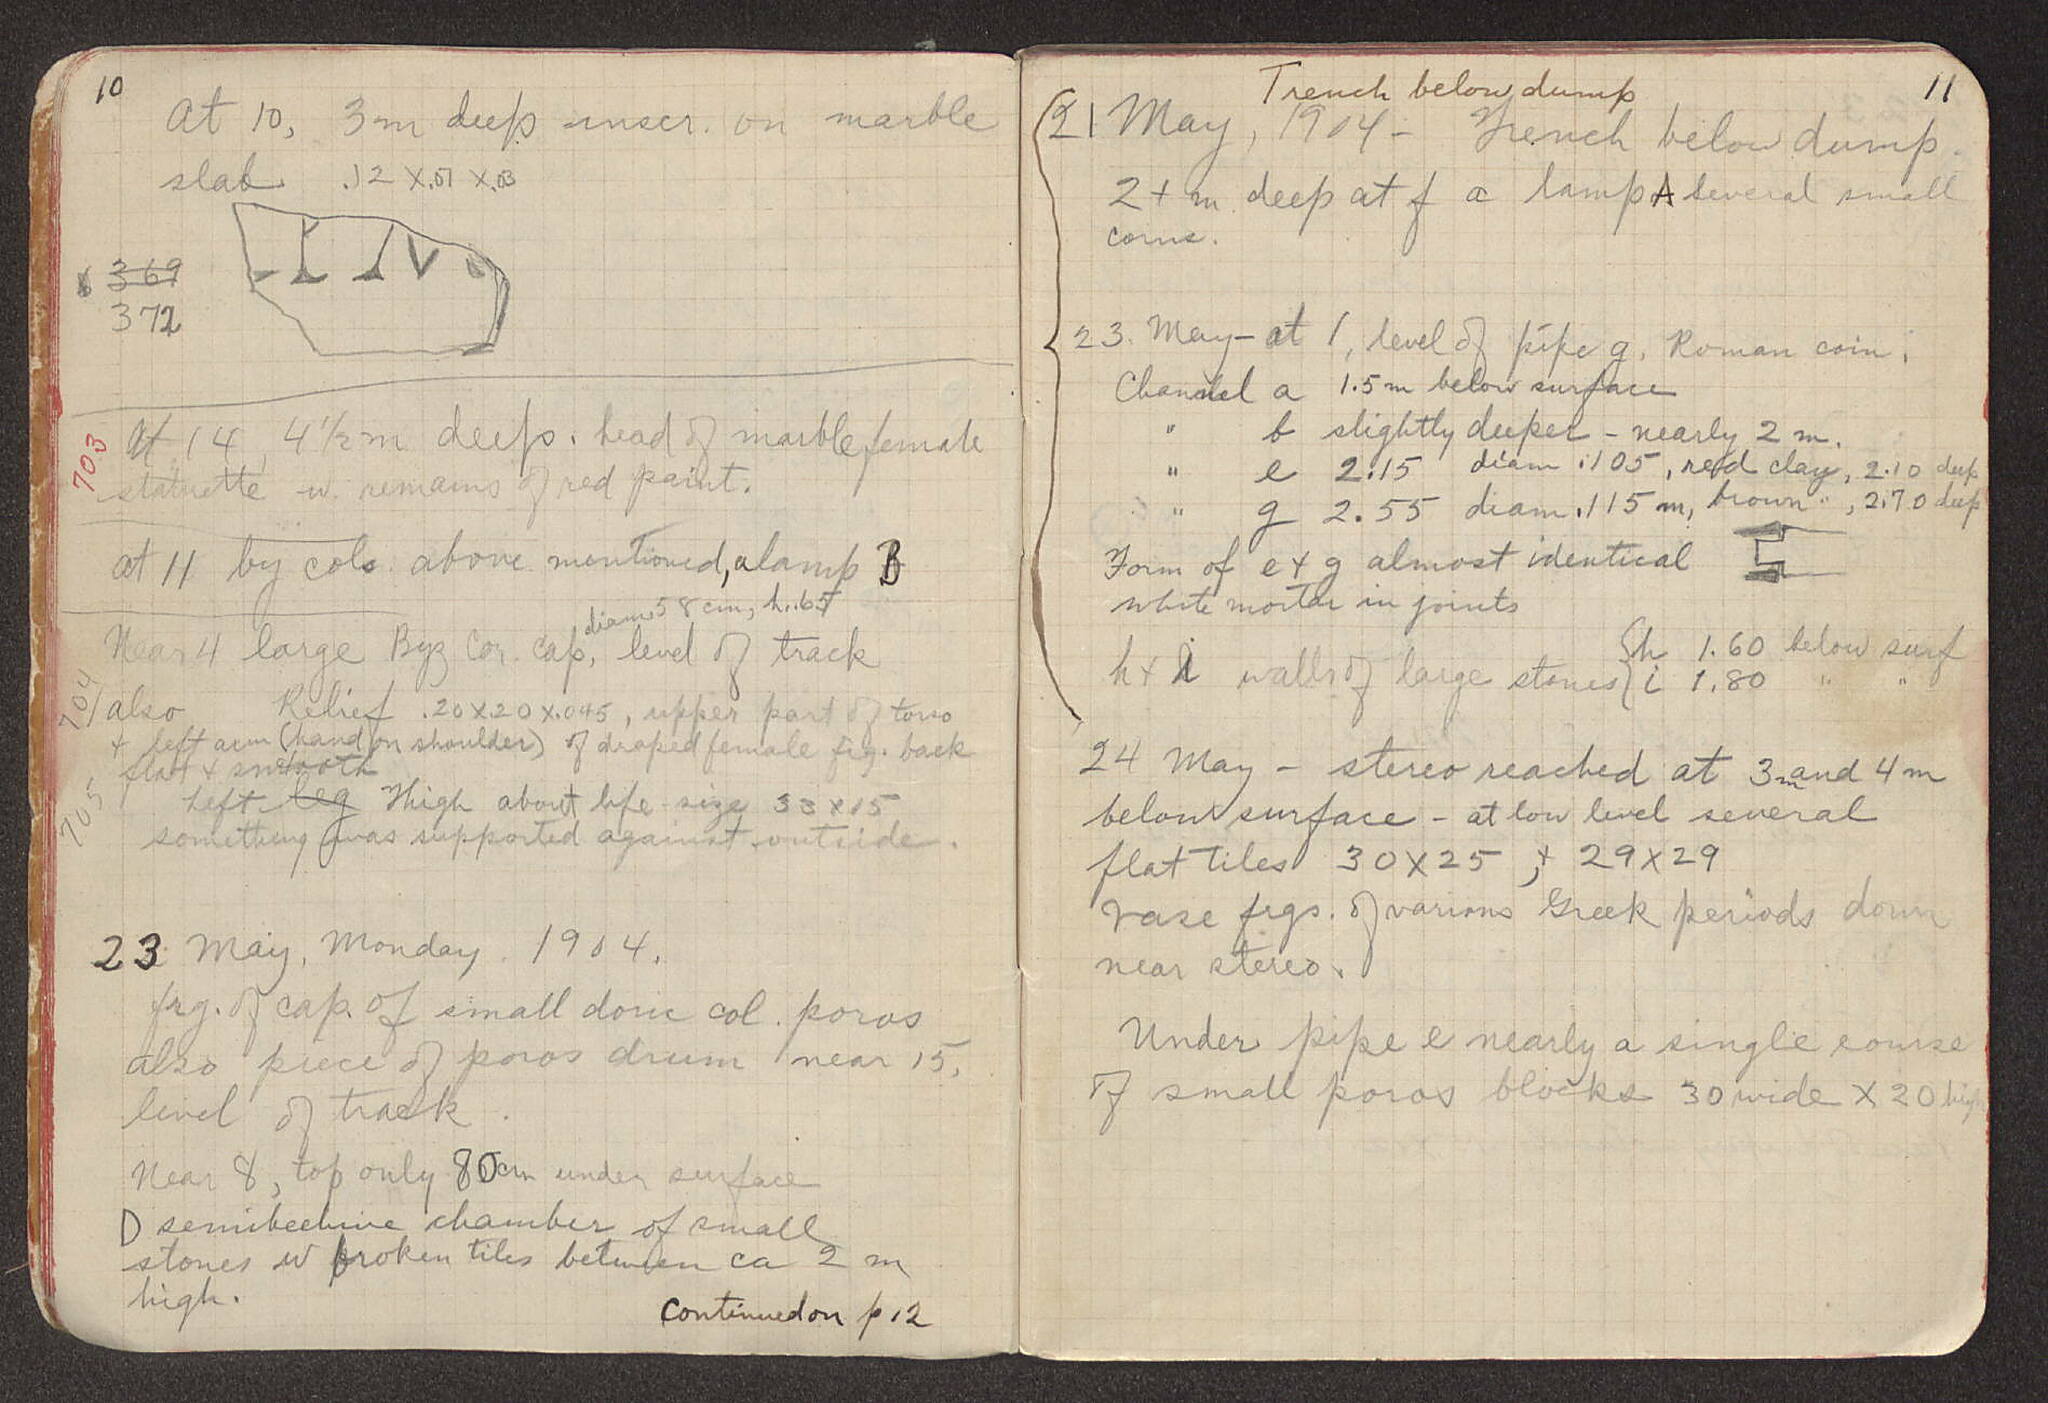 10
At 10, 3m deep inscr. on marble
slab .12 X .07 X .03
369
372
703
At 14, 4½ m deep. head of marble female
statuette w. remains of red paint.
at 11 by cols. above mentioned, a lamp B
diam. 58 cm, h. .65
Near 4 large Byz Cor. cap, level of track
704
also Relief .20 x .20 x .045, upper part of torso
+ left arm (hand on shoulder) of draped female fig. back
flat + smooth
705
Left leg Thigh about life-size 33 x 15
something was supported against outside.
23 May, Monday. 1904.
frg. of cap. of small doric col. poros
also piece of poros drum near 15,
level of track.
Near 8, top only 80cm under surface
D semibeehive chamber of small
stones w broken tiles between ca 2 m
high.
Continued on p 12
11
Trench below dump
21 May, 1904 - Trench below dump.
2+ m. deep at f a lamp A several small
coins.
23. May - at 1, level of pipe g, Roman coin.
Channel a 1.5 m below surface
" b slightly deeper - nearly 2 m.
" e 2.15 diam .105, red clay, 2.10 deep
" g 2.55 diam .115 m, brown ", 2.70 deep
Form of e + g almost identical
white mortar in joints
h + i walls of large stones { h 1.60 below surf
i 1.80 " "
24 May - stereo reached at 3m and 4 m
below surface - at low level several
flat tiles 30 X 25, + 29 X 29
Vase frgs. of various Greek periods down
near stereo.
Under pipe e nearly a single course
of small poros blocks 30 wide X 20 high